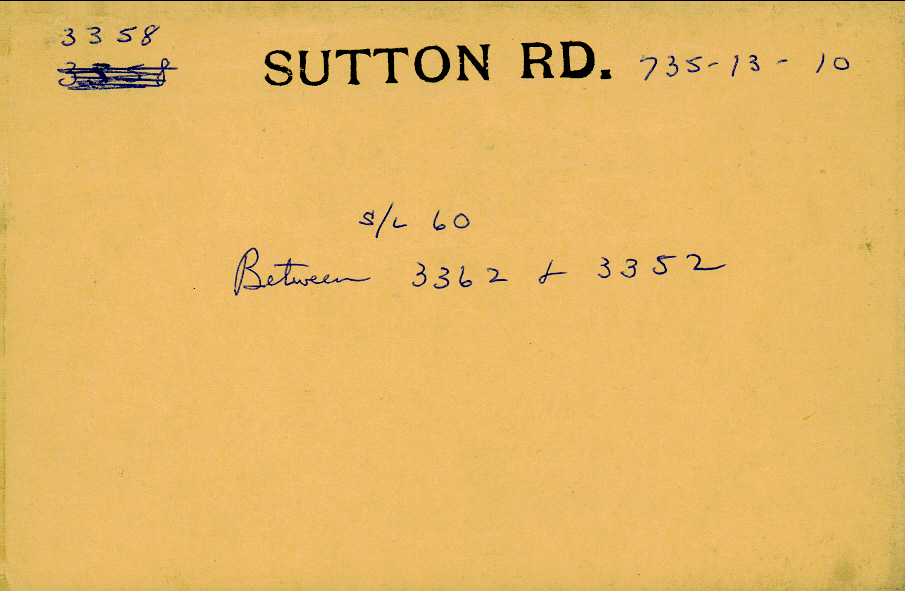 3358
SUTTON RD. 735-13-10
S/L 60
Between 3362 & 3352